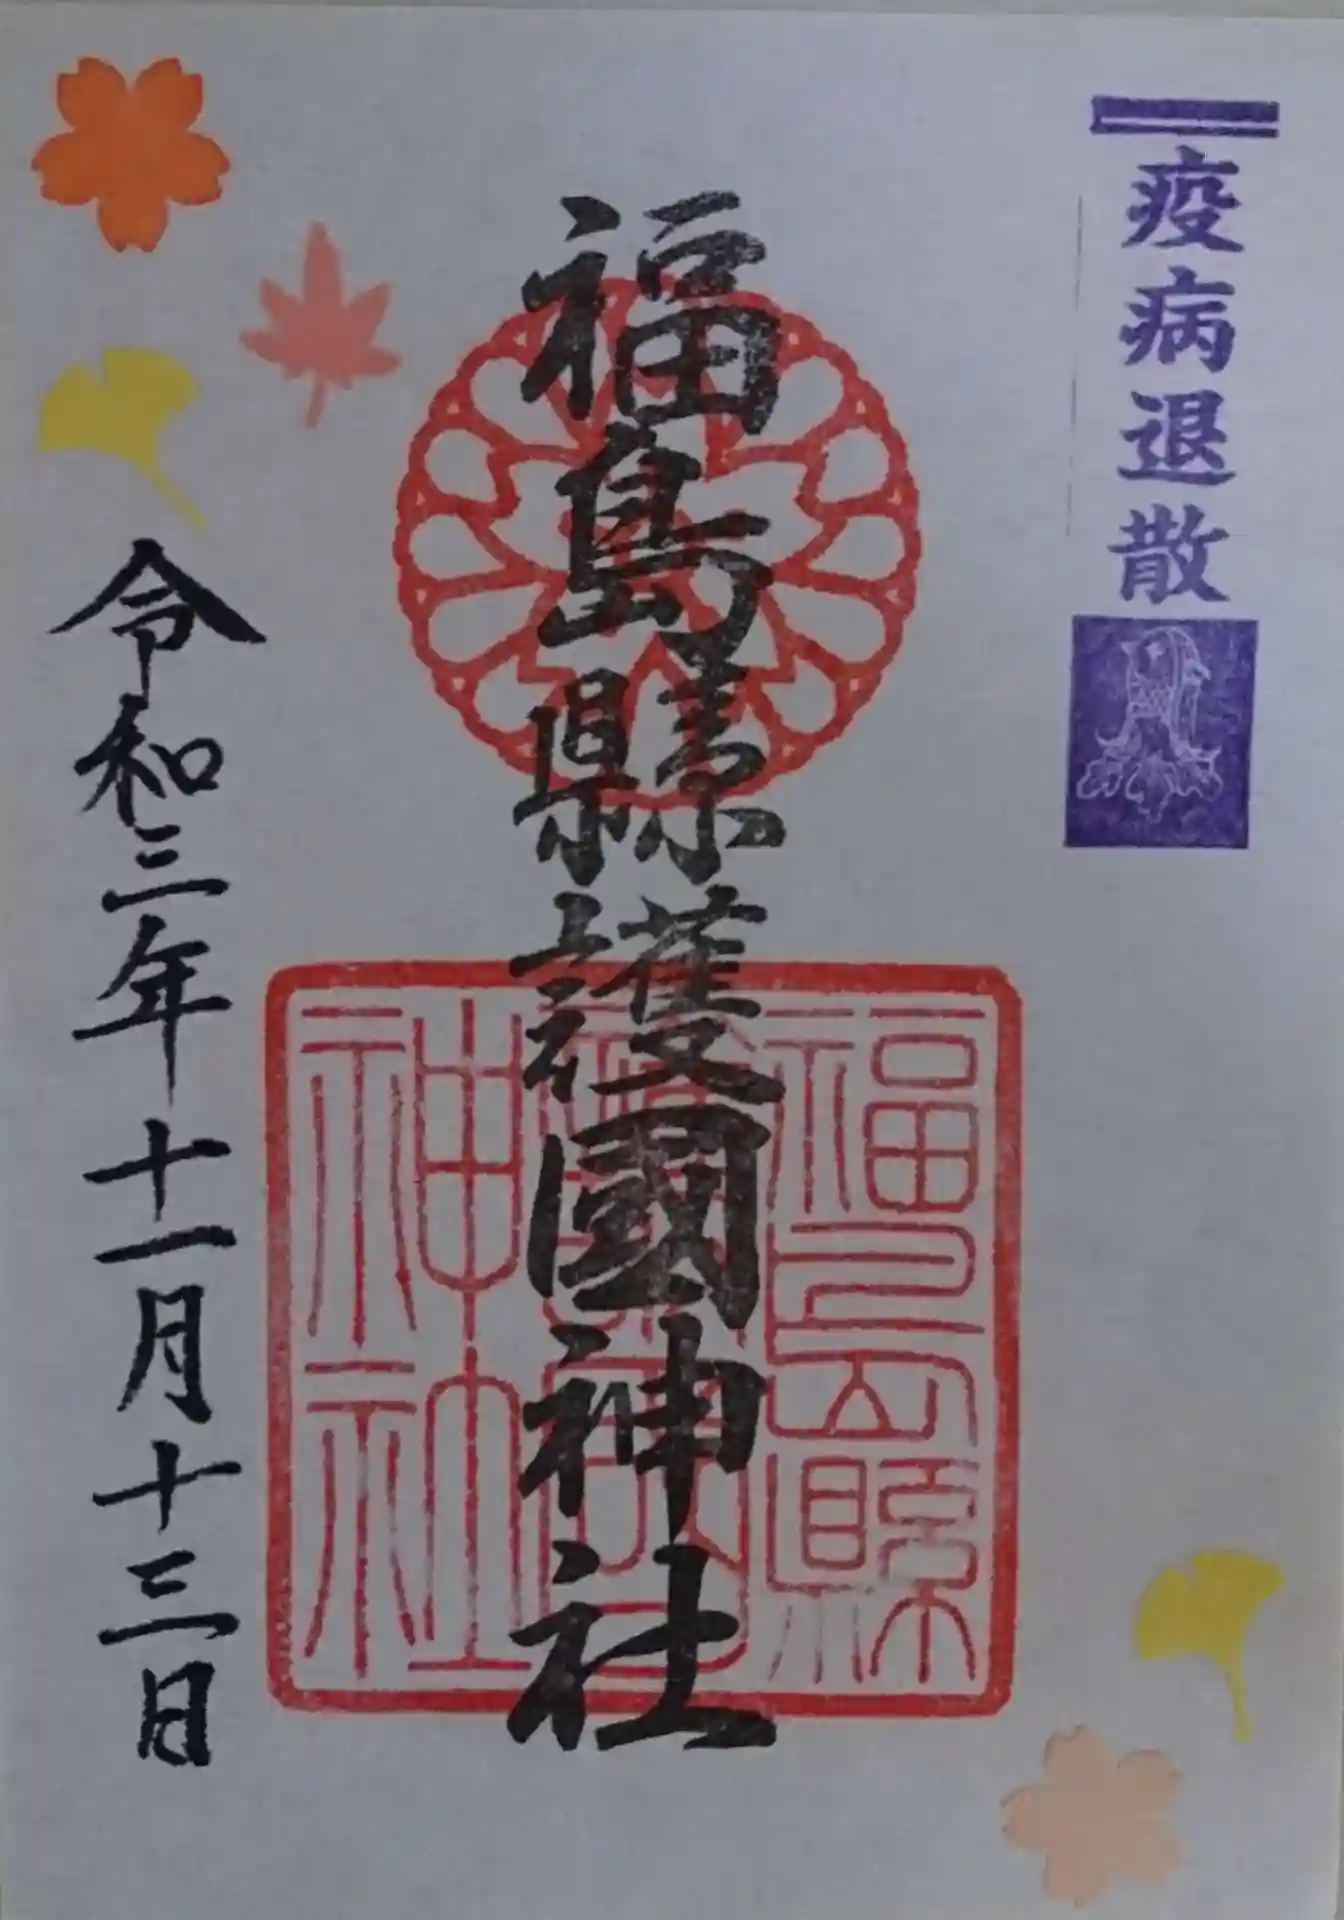 疫病退散
福島縣護國神社
福島縣護國神社
令和三年十一月十三日